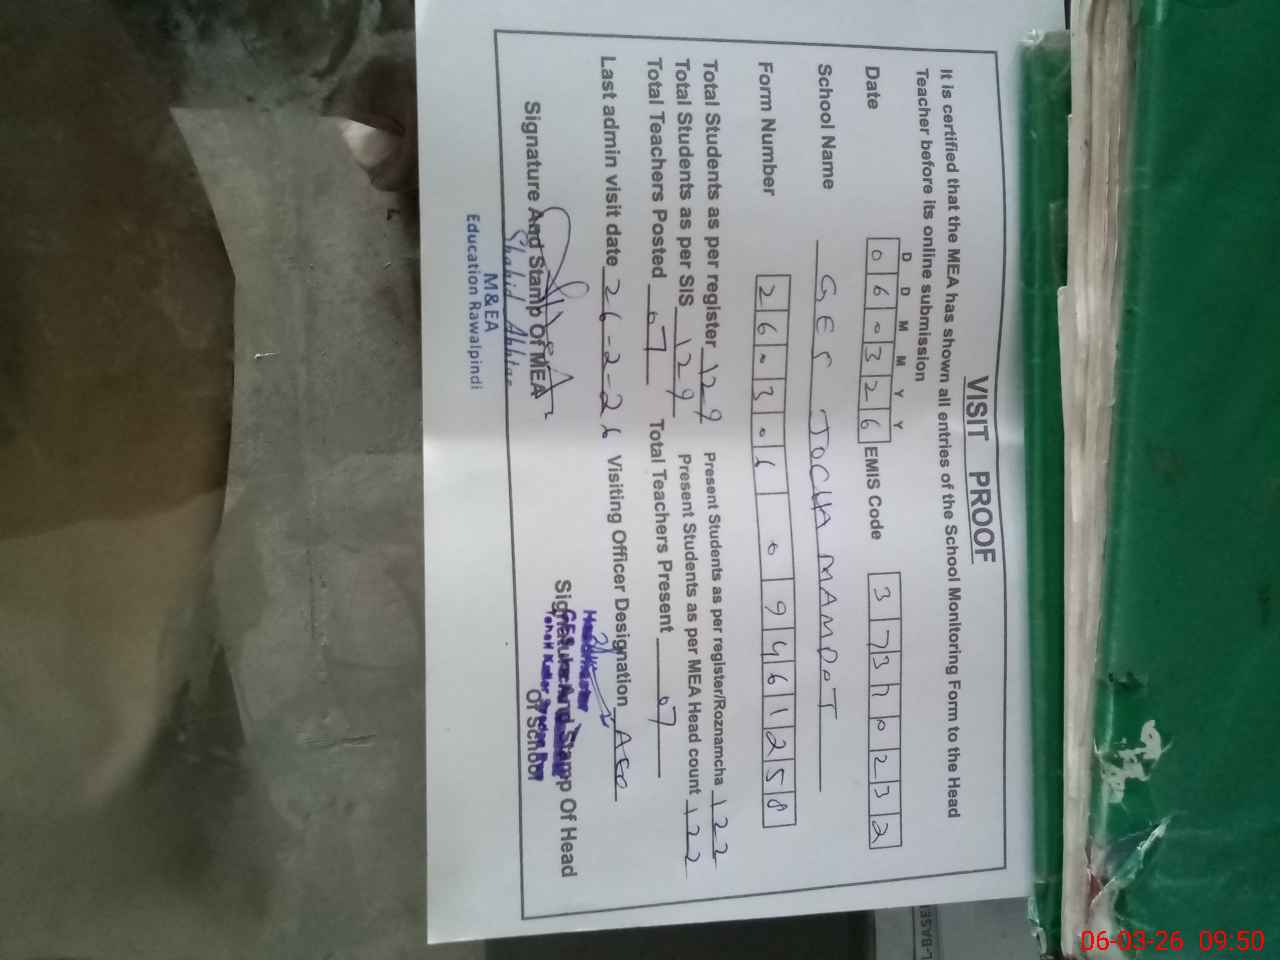 VISIT PROOF
It is certified that the MEA has shown all entries of the School Monitoring Form to the Head
Teacher before its online submission
D D M M Y Y
Date 060326 EMIS Code 37370232
School Name GES JOCHA MAMDOT
Form Number 260306 09461258
Total Students as per register 129 Present Students as per register/Roznamcha 122
Total Students as per SIS 129 Present Students as per MEA Head count 122
Total Teachers Posted 07 Total Teachers Present 07
Last admin visit date 26-2-26 Visiting Officer Designation AEO
Signature And Stamp Of MEA Signature And Stamp Of Head
Of School
Shahid Akhtar
M&EA
Education Rawalpindi
Headmaster
GES
Tehsil Kallar
06-03-26 09:50